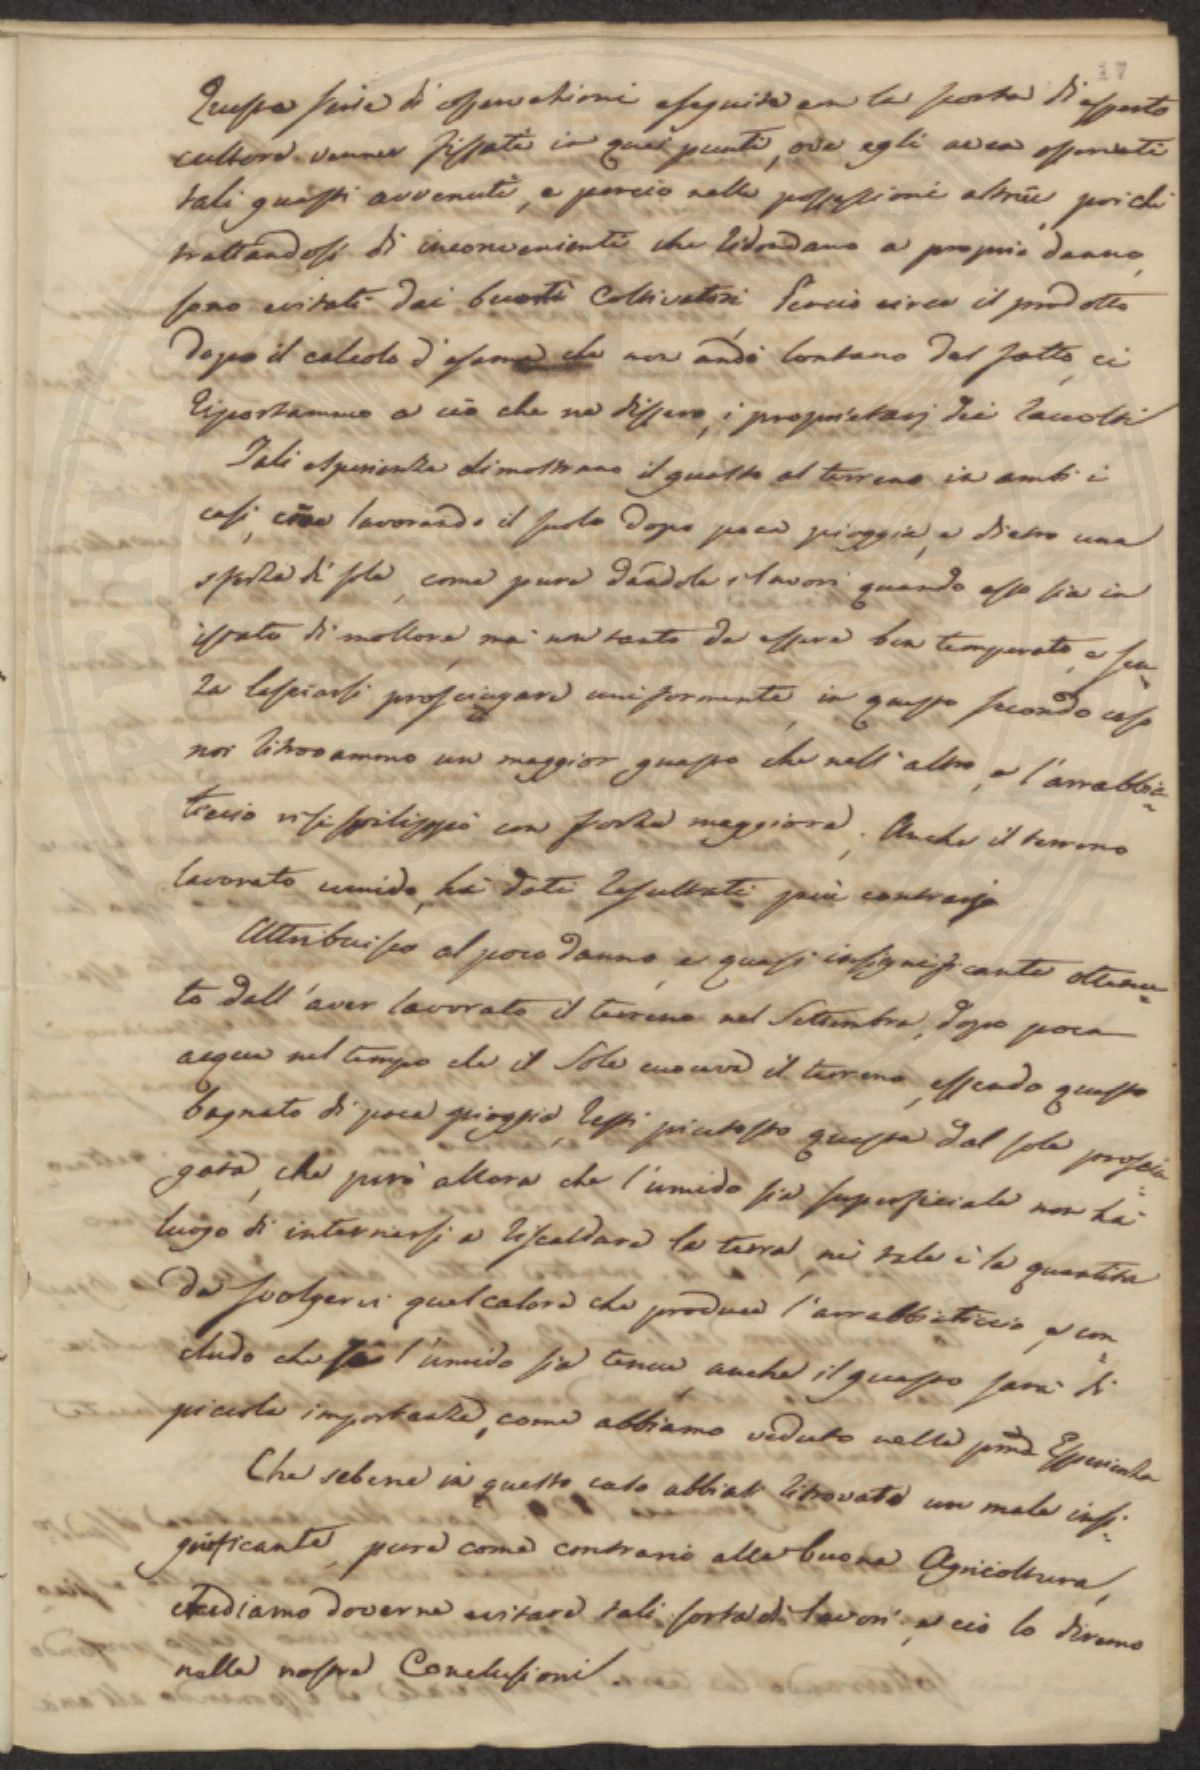 17
Questa serie di osservazioni eseguita con la scorta di esperto
cultore venner fissate in quei punti, ove egli avea osservati
tali guasti avvenuti, e perciò nelle possessioni altrui, poichè
trattandosi di inconvenienti che ridondano a proprio danno,
sono evitati dai buoni Coltivatori. Perciò circa il prodotto
dopo il calcolo d'esame che non andò lontano dal fatto, ci
riportammo a ciò che ne dissero, i proprietarj dei raccolti
Tali esperienze dimostrano il guasto al terreno in ambi i
casi, cioè lavorando il suolo dopo poca pioggia, e dietro una
sferza di sole, come pure dandole i lavori quando esso sia in
istato di mollore, mai non tanto da essere ben temperato, e sen-
za lasciarsi prosciugare uniformente, in questo secondo caso
noi ritrovammo un maggior guasto che nell'altro, e l'arrabbia-
ticcio vi si sviluppò con forza maggiore. Anche il terreno
lavorato umido, ha dati resultati più contrarj
Attribuisco al poco danno, e quasi insignificante ottenu-
to dall'aver lavorato il terreno nel Settembre, dopo poca
acqua nel tempo che il Sole cuoceva il terreno, essendo questo
bagnato di poca pioggia, resti piuttosto questa dal sole prosciu-
gata, che però allora che l'umido sia superficiale non ha
luogo di internarsi a riscaldare la terra, nè tale è la quantità
da svolgervi quel calore che produce l'arrabbiaticcio, e con-
cludo che se l'umido sia tenue, anche il guasto sarà di
piccola importanza, come abbiamo veduto nella pma Esperienza
Che sebene in questo caso abbiati ritrovato un male insi-
gnificante, pure come contrario alla buona Agricoltura,
crediamo doverne evitare tali sorta di lavori, e ciò lo diremo
nelle nostre Conclusioni.